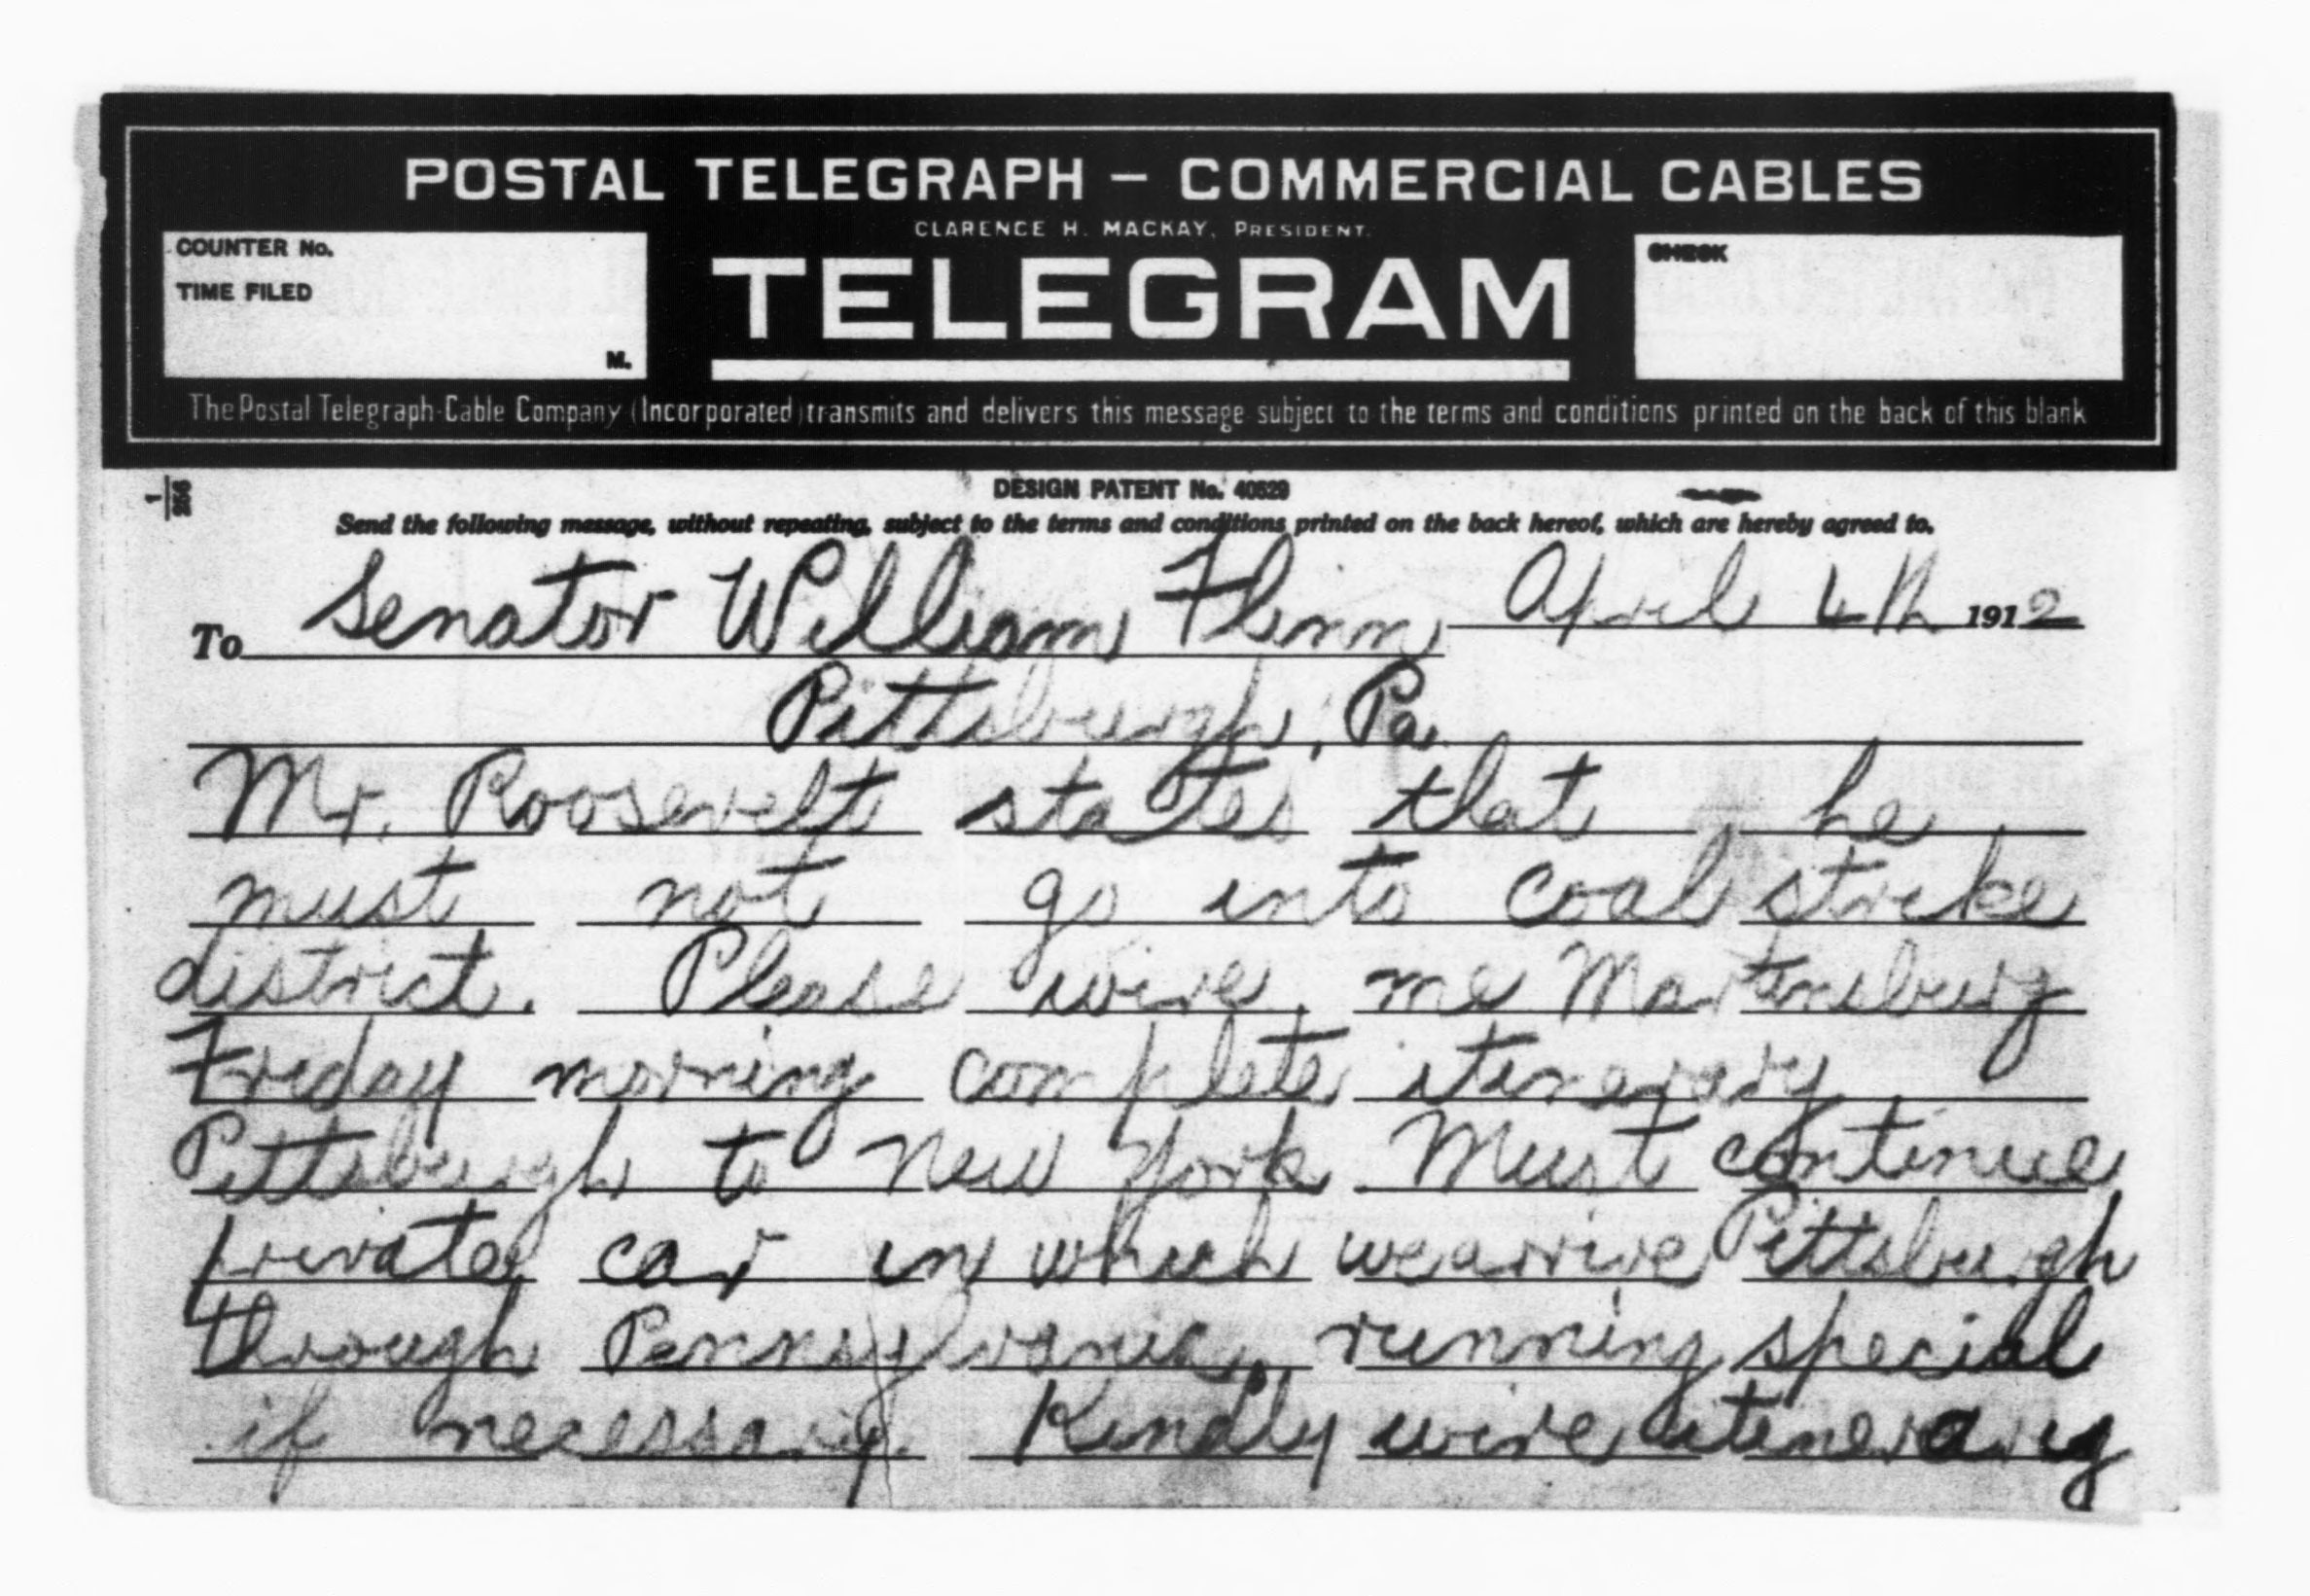 POSTAL TELEGRAPH – COMMERCIAL CABLES
CLARENCE H. MACKAY, PRESIDENT.
COUNTER No.
TIME FILED
M.
TELEGRAM
CHECK
The Postal Telegraph-Cable Company (Incorporated) transmits and delivers this message subject to the terms and conditions printed on the back of this blank
1/256
DESIGN PATENT No. 40529
Send the following message, without repeating, subject to the terms and conditions printed on the back hereof, which are hereby agreed to.
To Senator William Flinn April 4th 1912
Pittsburgh, Pa.
Mr. Roosevelt states that he
must not go into coal strike
district. Please wire me Martinsburg
Friday morning complete itinerary
Pittsburgh to New York Must continue
private car in which we arrive Pittsburgh
through Pennsylvania, running special
if necessary. Kindly wire itinerary